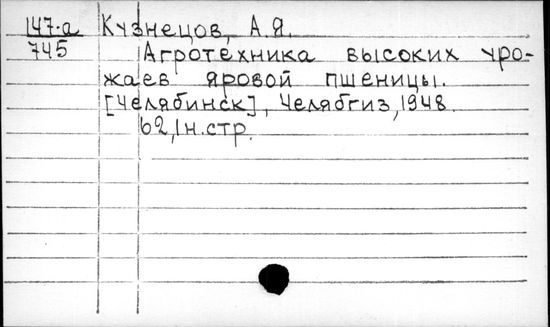 147-а Кузнецов, А.Я.
745 Агротехника высоких уро-
жаев яровой пшеницы.
[Челябинск], Челябгиз, 1948.
62, 1 н. стр.